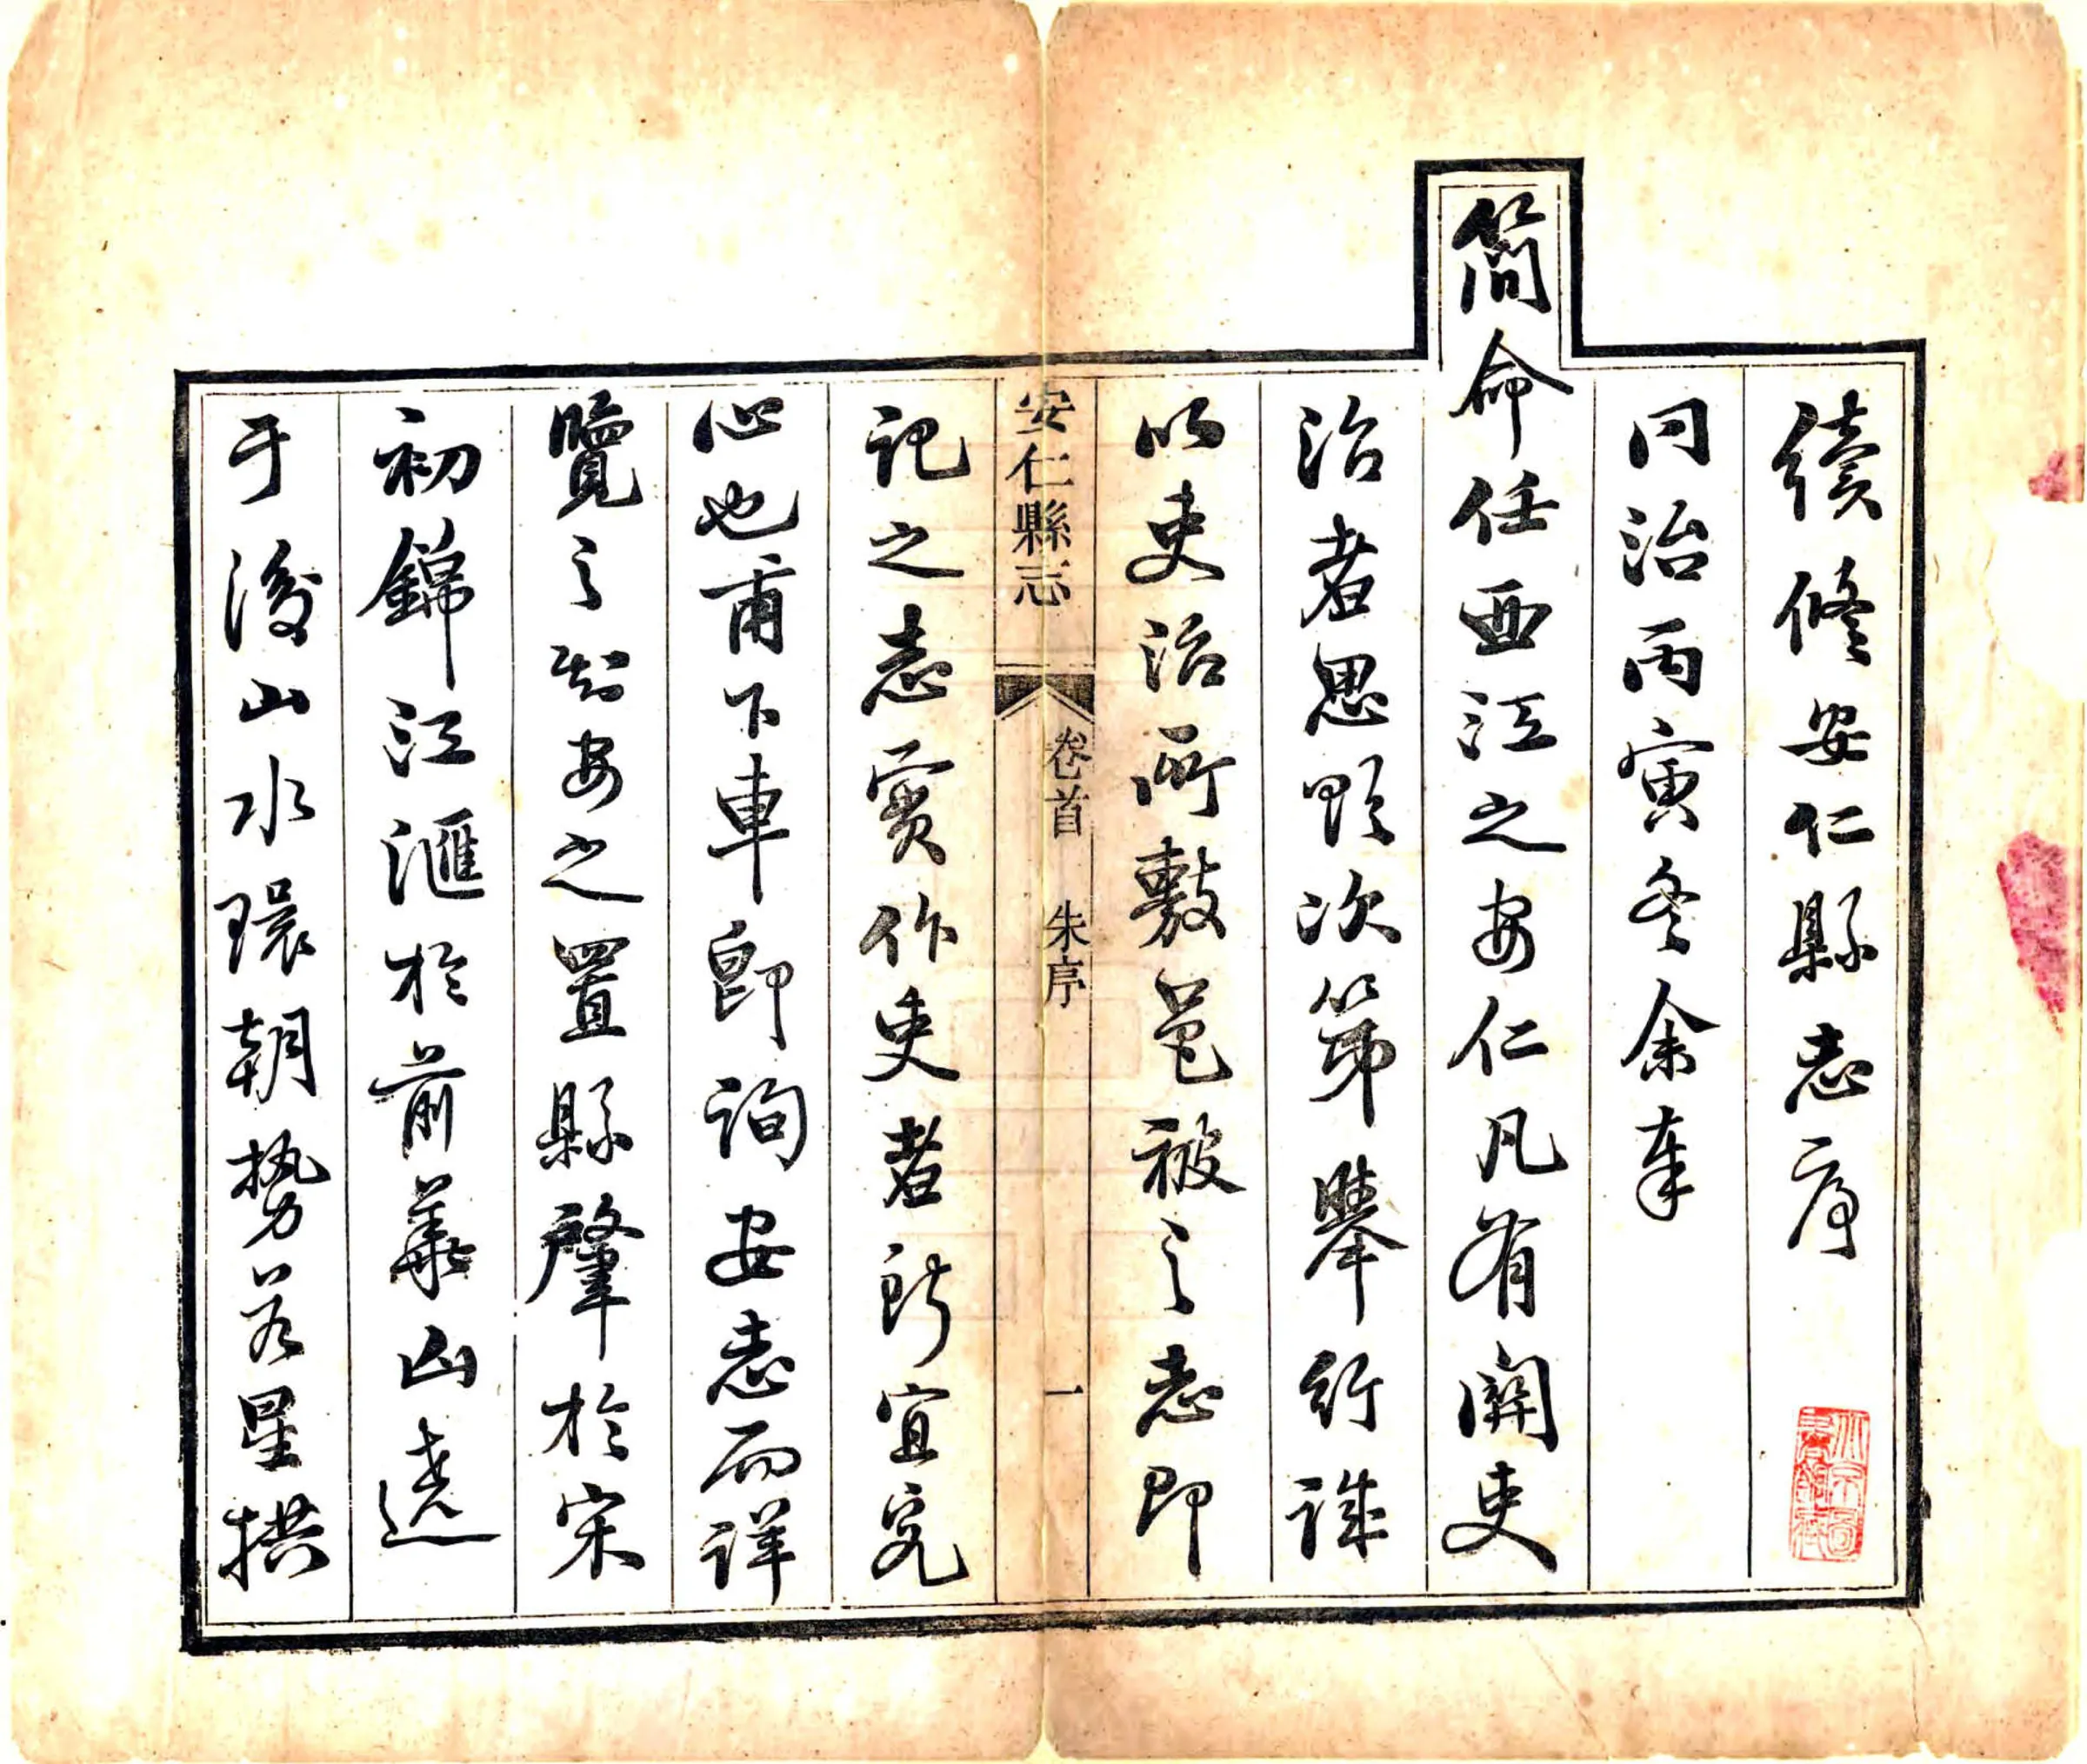 續修安仁縣志序
同治丙寅冬余奉
簡命任西江之安仁凡有關吏
治者思欲次第舉行誠
以吏治所敷邑被之志即
安仁縣志 卷首 朱序 一
記之志實作吏者所宜究
心也甫下車卽詢安志而詳
覽之知安之置縣肇於宋
初錦江滙於前華山遶
于後山水環朝勢若星拱